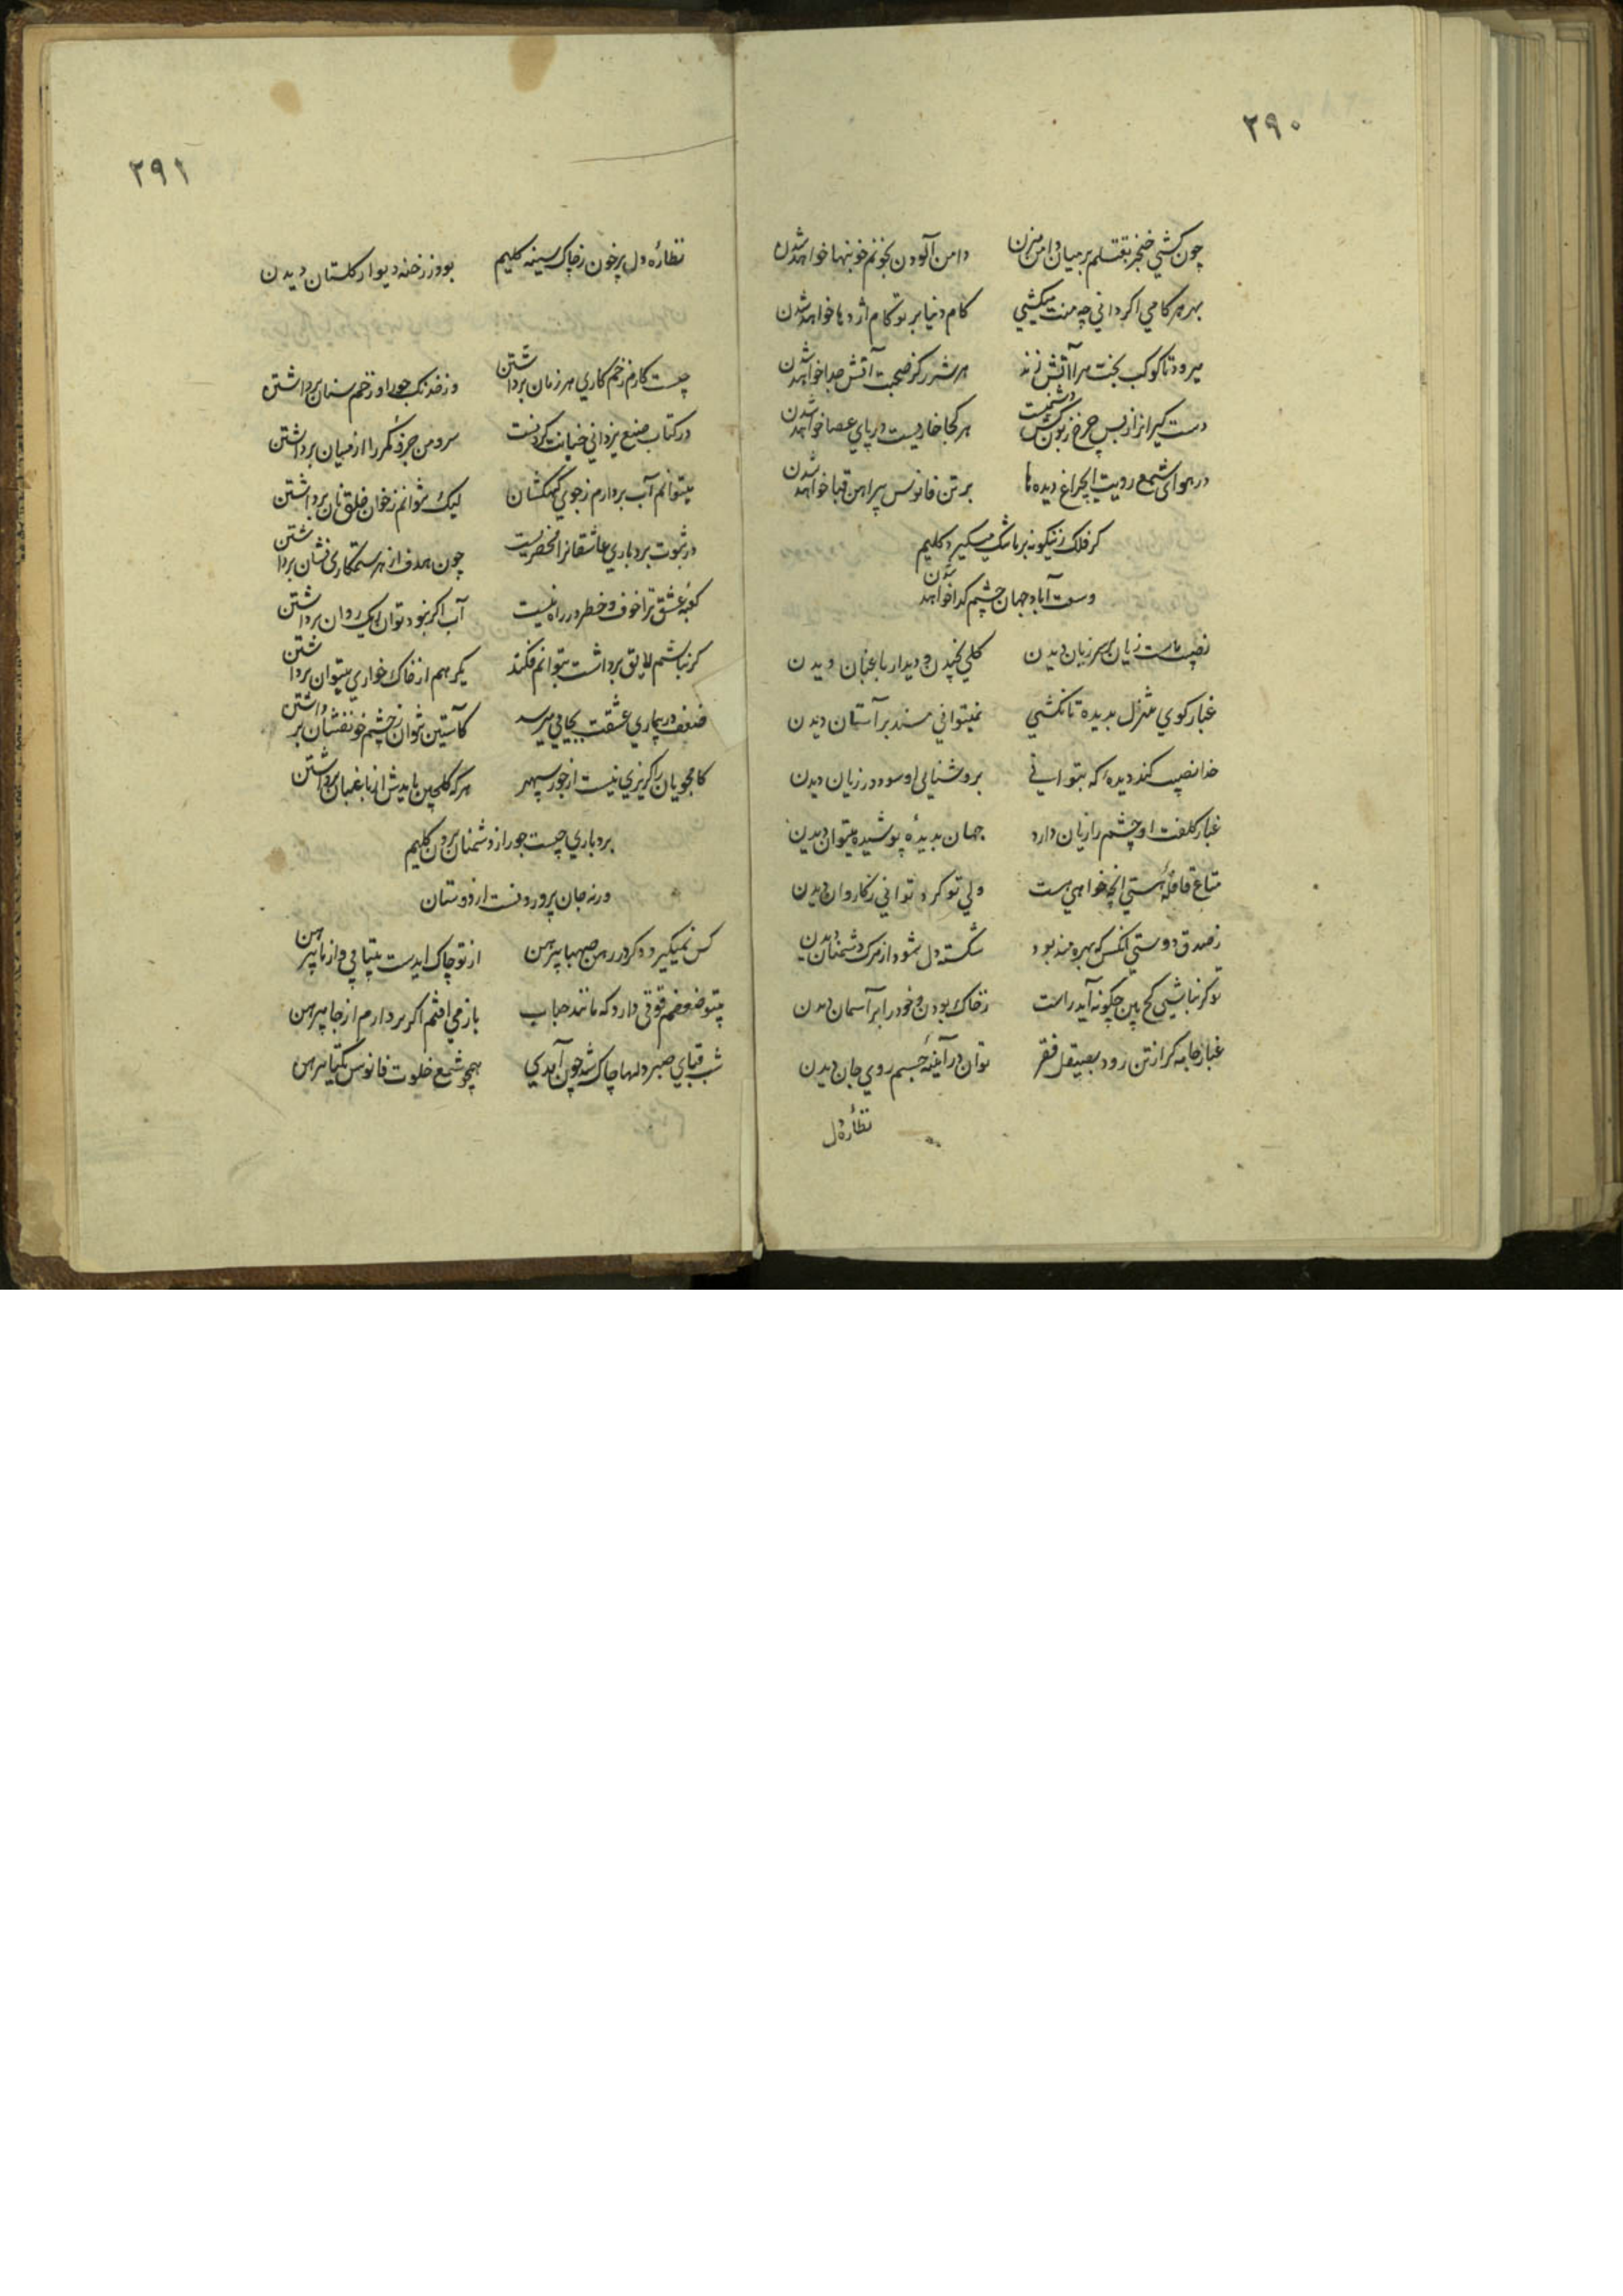 ۲۹۰
چون کشی خنجر بقتلم بر میان دامن مزن دامن آلودن بخونم خونبها خواهد شدن
بهر هر کامی اگر دانی چه منت میکشی کام دنیا بر تو کام اژدها خواهد شدن
میرود تا کوکب بخت مرا آتش زند هر شرر کز صحبت آتش جدا خواهد شدن
دست گیرانرا ز بس چرخ زبون کش دشمنست هر کجا خاریست در پای عصا خواهد شدن
در هوای شمع رویت ای چراغ دیده ها بر تن فانوس پیراهن قبا خواهد شدن
گر فلک زینگونه بر ما تنگ میگیرد کلیم
وسعت آباد جهان چشم گدا خواهد شدن
نصیب ماست زیان بر سر زیان دیدن گلی نچیدن و دیدار باغبان دیدن
غبار کوی بدیده تا نکشی نمیتوانی مسند بر آستان دیدن
خدا نصیب کند دیده که بتوانی بروشنایی او سود در زیان دیدن
غبار کلفت او چشم را زیان دارد جهان بدیدهٔ پوشیده میتوان دیدن
متاع قافلهٔ هستی آنچه خواهی هست ولی تو گرد توانی ز کاروان دیدن
ز صدق دوستی آنکس که بهره مند بود شکسته دل شود از مرگ دشمنان دیدن
تو گر نباشی کج بین چگونه آید راست ز خاک بودن و خود را بر آسمان دیدن
غبار جامه گر از تن رود بصیقل فقر توان در آینهٔ جسم روی جان دیدن
نظارهٔ دل
۲۹۱
نظارهٔ دل پر خون ز چاک سینه کلیم بود ز رخنه دیوار گلستان دیدن
چیست کارم زخم کاری هر زمان برداشتن وز خدنگ جور او زخم سنان برداشتن
در کتاب صنع یزدانی خیانت کردنست سر و من حرف کمر را از میان برداشتن
میتوانم آب بردارم ز جوی کهکشان لیک نتوانم ز خوان خلق نان برداشتن
در ثبوت بردباری عاشقانرا محضریست چون هدف از هر ستمکاری نشان برداشتن
کعبهٔ عشق ترا خوف و خطر در راه نیست آب اگر نبود توان ریگ روان برداشتن
گر نباشم لایق برداشت بتوانم فکند یکرهم از خاک خواری میتوان برداشتن
ضعف در بیماری عشقت بجایی میرسد کآستین نتوان ز چشم خونفشان برداشتن
کامجویان را گریزی نیست از جور سپهر هر که گلچین بایدش از باغبان برداشتن
بردباری چیست جور از دشمنان بردن کلیم
ورنه جان پرور دنست از دوستان
کس نمیگیرد دگر در رهن صهبا پیرهن از تو چاک ای دست بیتابی و از ما پیرهن
ضعفم قوتی دارد که مانند حباب باز می افتم اگر بردارم از جا پیرهن
شب قبای صبر دلها چاک شد چون آمدی همچو شمع خلوت فانوس یکتا پیرهن